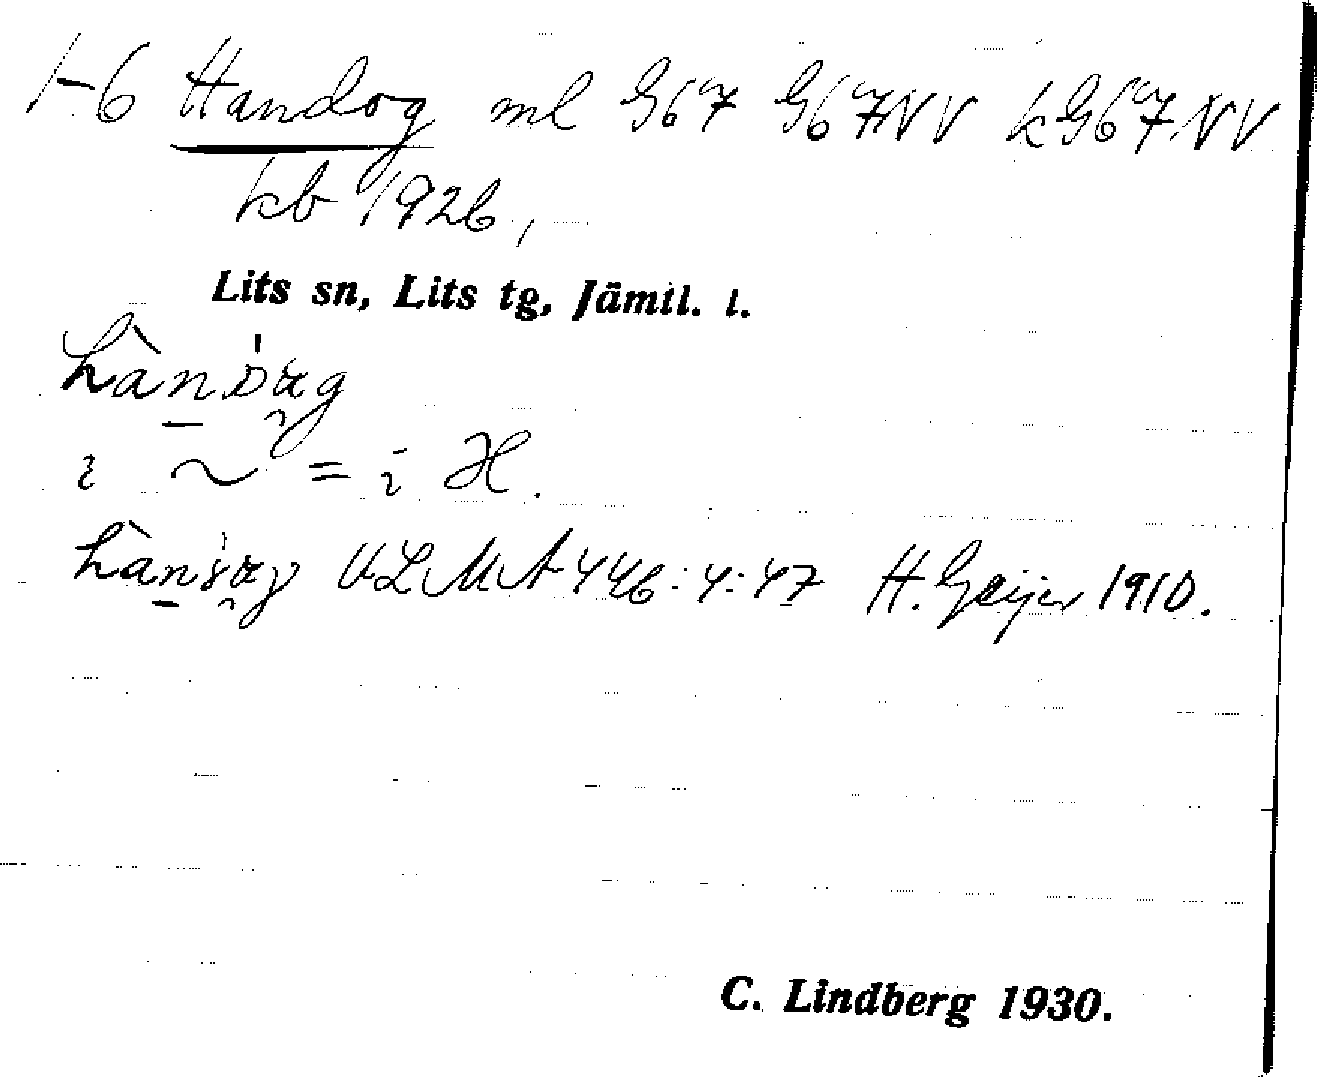 1-6 Handog ml G67 G67NV kG67NV
kb 1926,
Lits sn, Lits tg, Jämtl. l.
i ~ = i H.
ULMA 446:4:47 H. Geijer 1910.
C. Lindberg 1930.